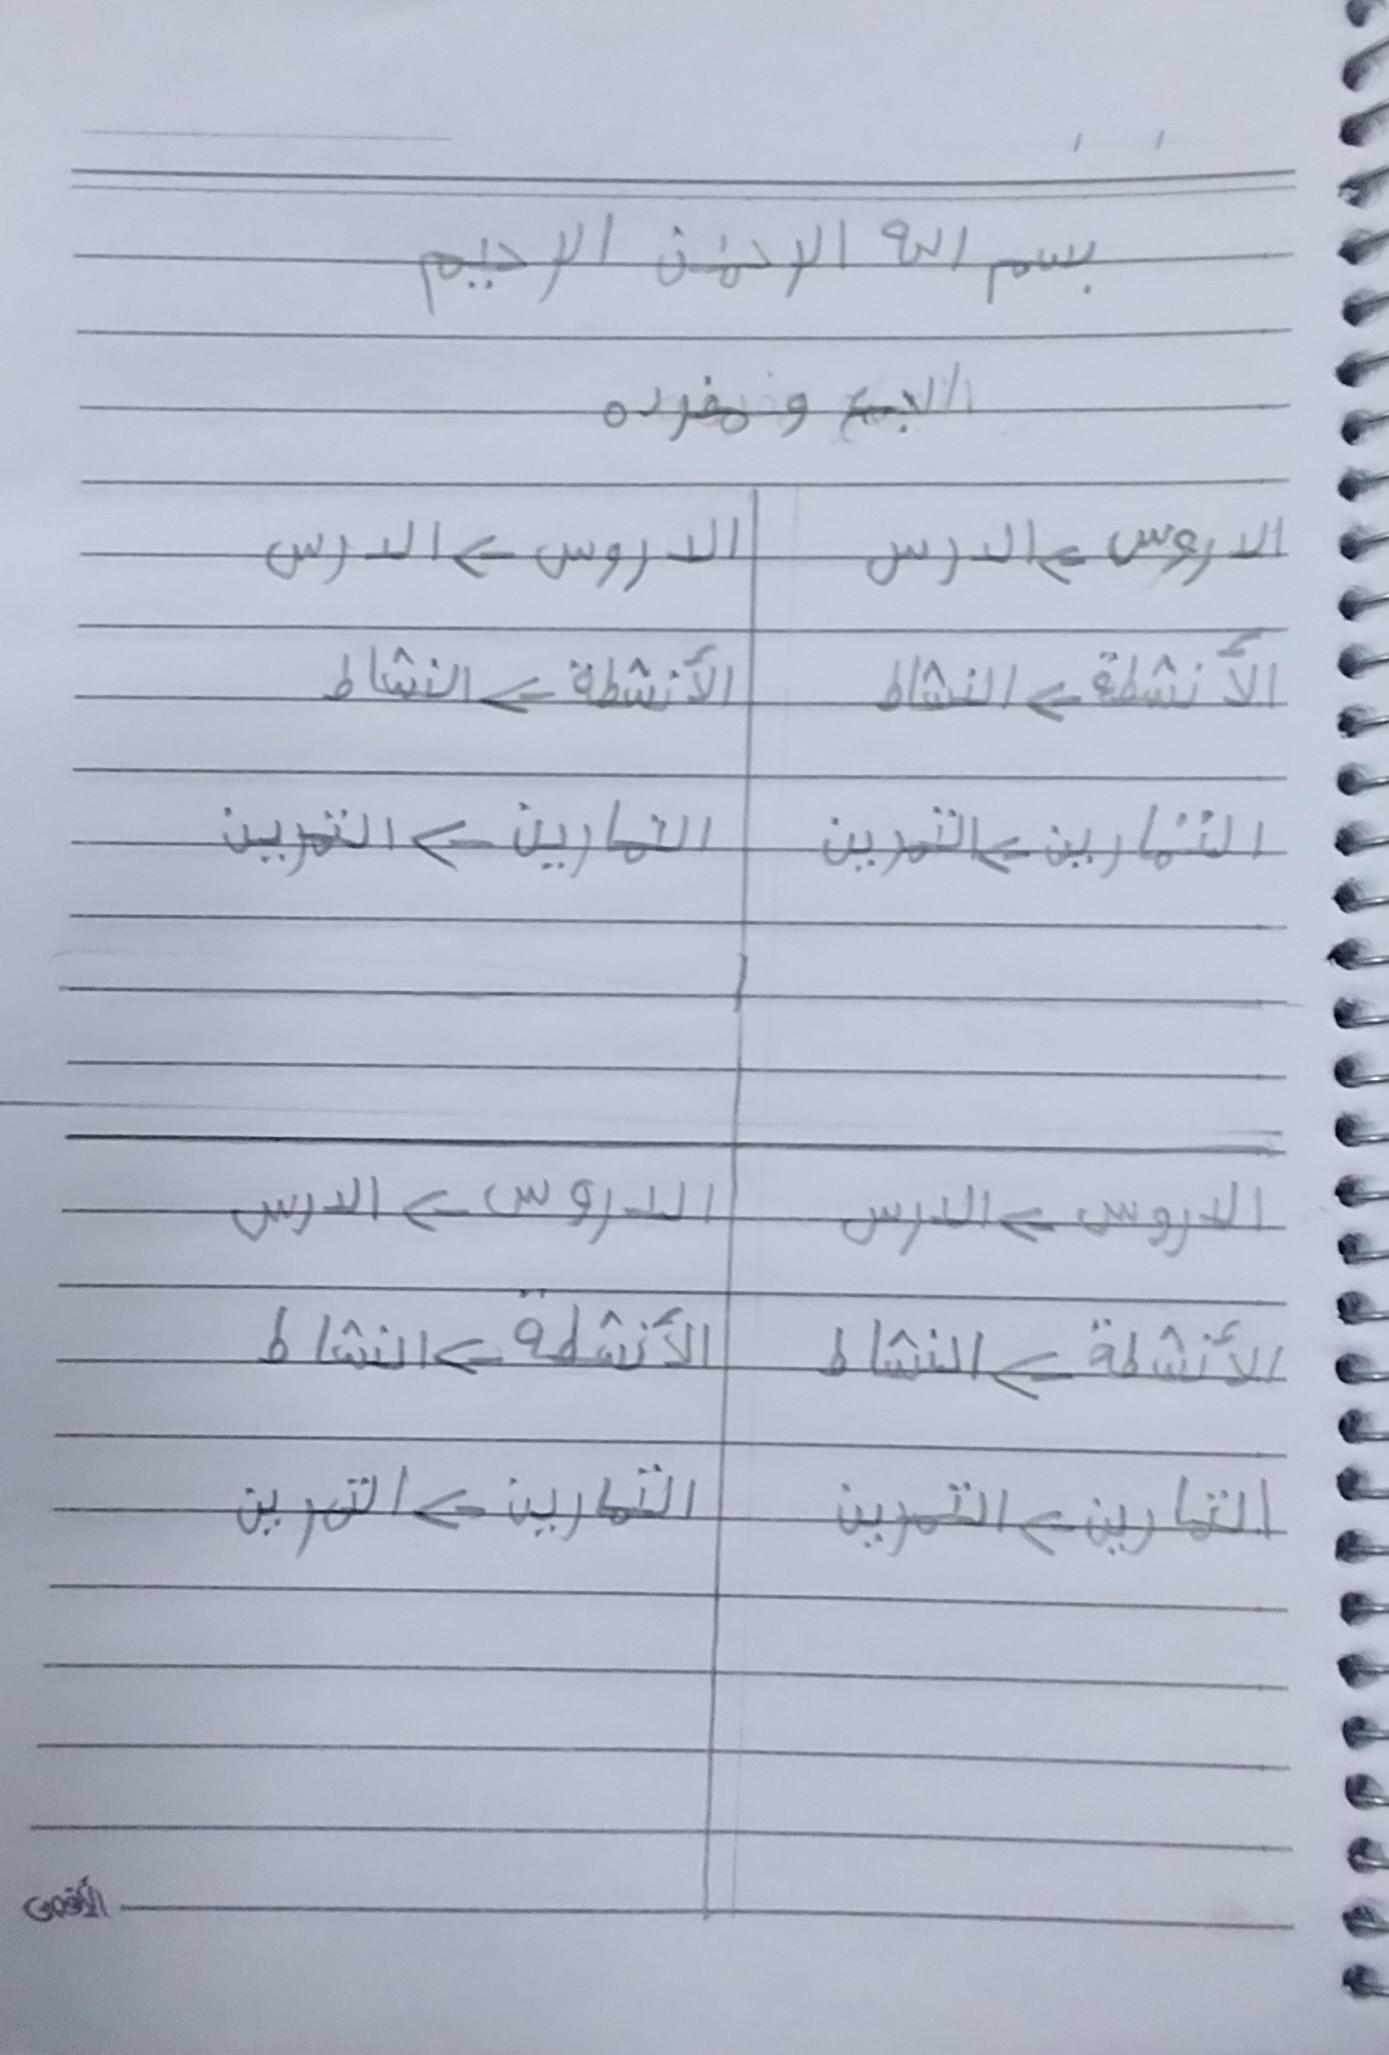 بسم الله الرحمن الرحيم
الجمع و مفرده
الدروس ← الدرس الدروس ← الدرس
الأنشطة ← النشاط الأنشطة ← النشاط
التمارين ← التمرين التمارين ← التمرين
الدروس ← الدرس الدروس ← الدرس
الأنشطة ← النشاط الأنشطة ← النشاط
التمارين ← التمرين التمارين ← التمرين
الأقصى